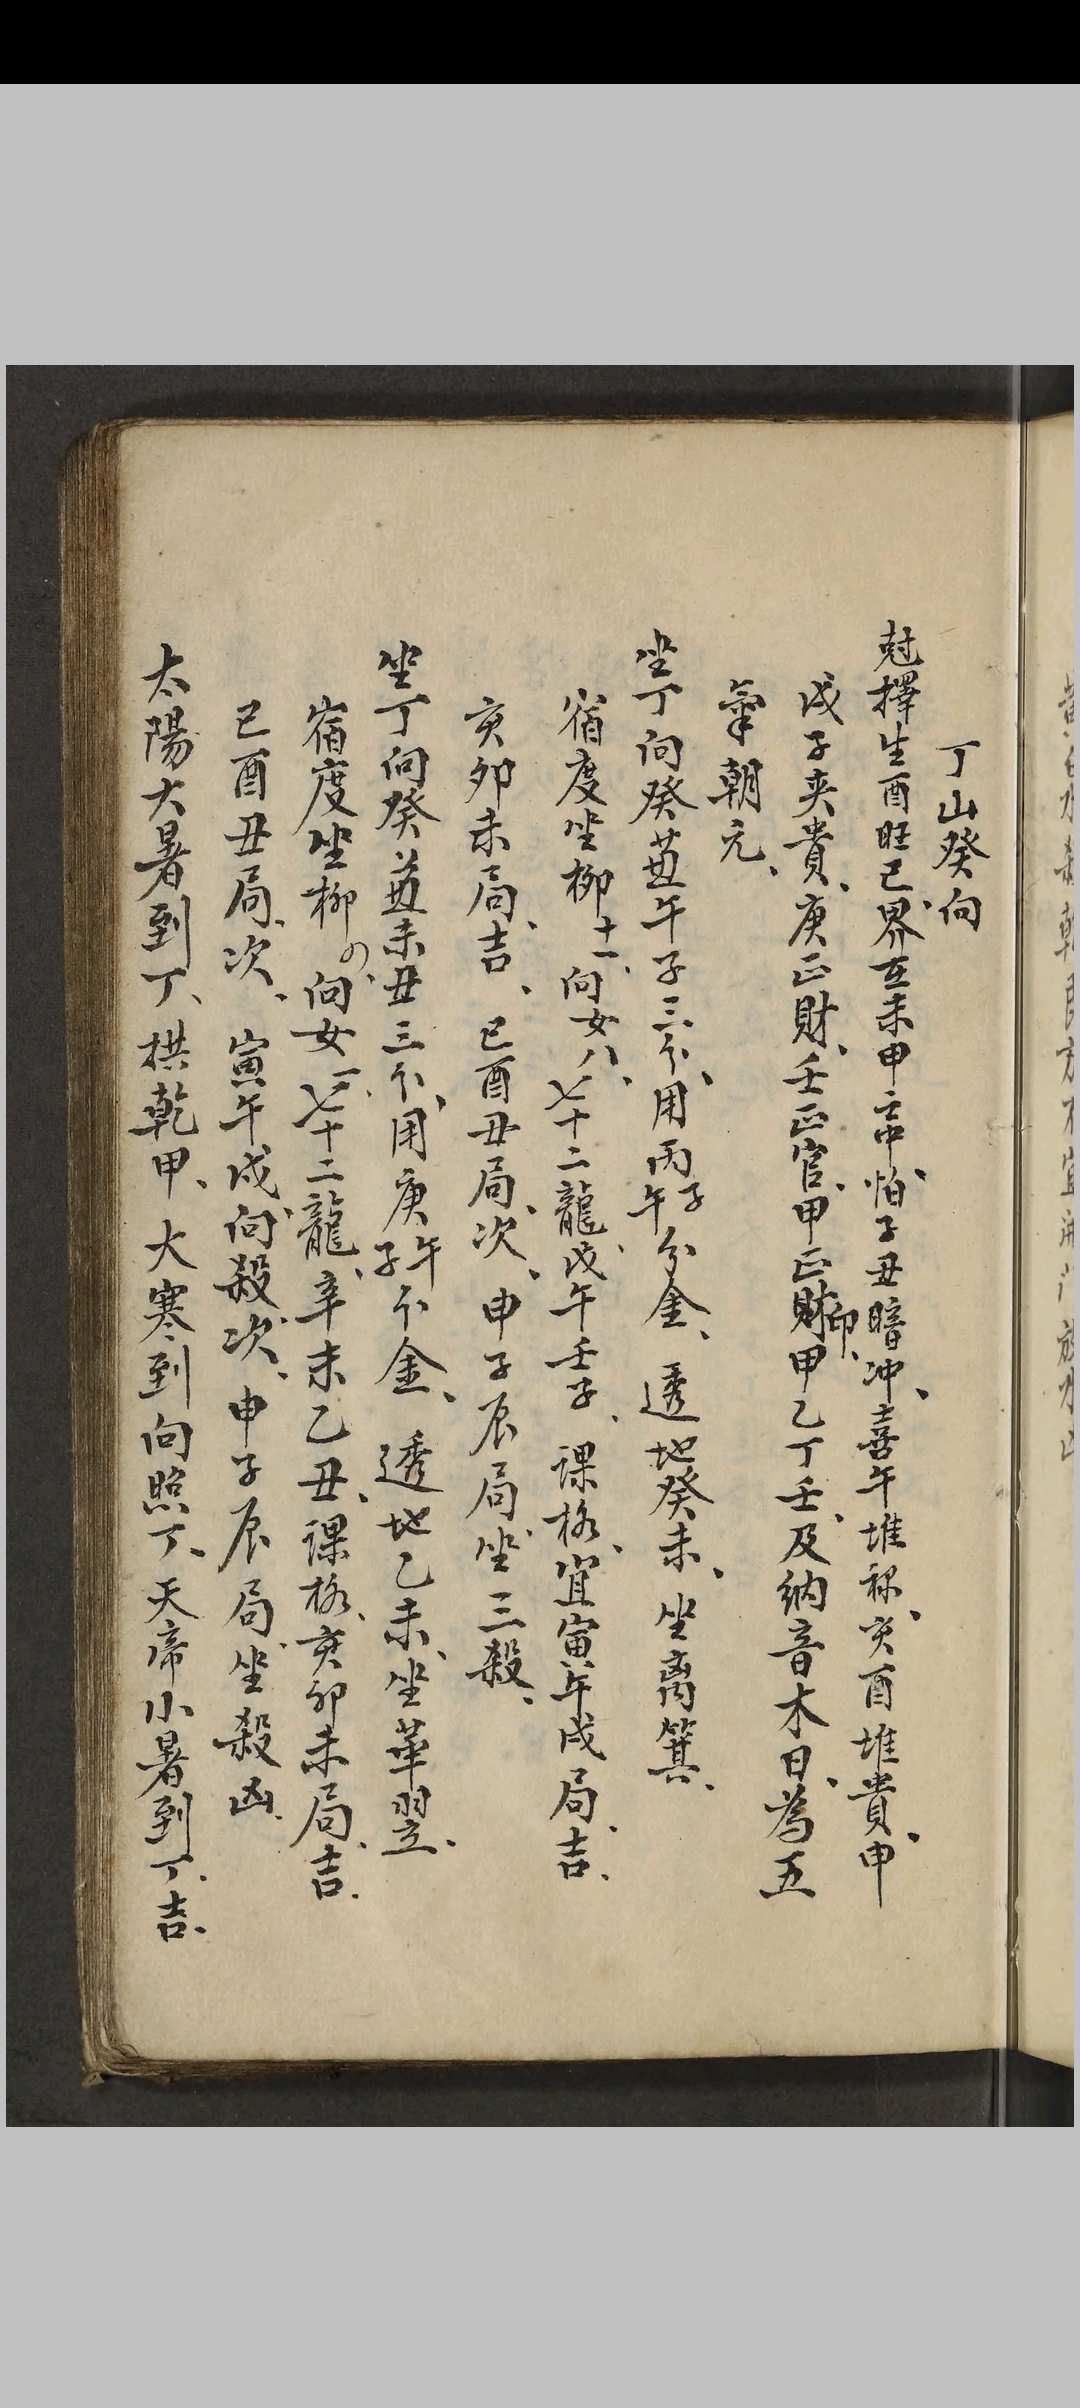 丁山癸向
尅擇生酉旺巳界互未申言怕子丑暗冲喜午堆祿亥酉堆貴申
戌子夾貴庚正財壬正官甲正印財甲乙丁壬及納音木日為五
氣朝元
坐丁向癸兼午子三分用丙子丙午分金透地癸未坐离箕
宿度坐柳十一向女八七十二龍戊午壬子課格宜寅午戌局吉
亥卯未局吉巳酉丑局次申子辰局坐三殺
坐丁向癸兼未丑三分用庚午庚子分金透地乙未坐華翌
宿度坐柳の向女一七十二龍辛未乙丑課格亥卯未局吉
巳酉丑局次寅午戌向殺次申子辰局坐殺凶
太陽大暑到丁拱乾甲大寒到向照丁天帝小暑到丁吉